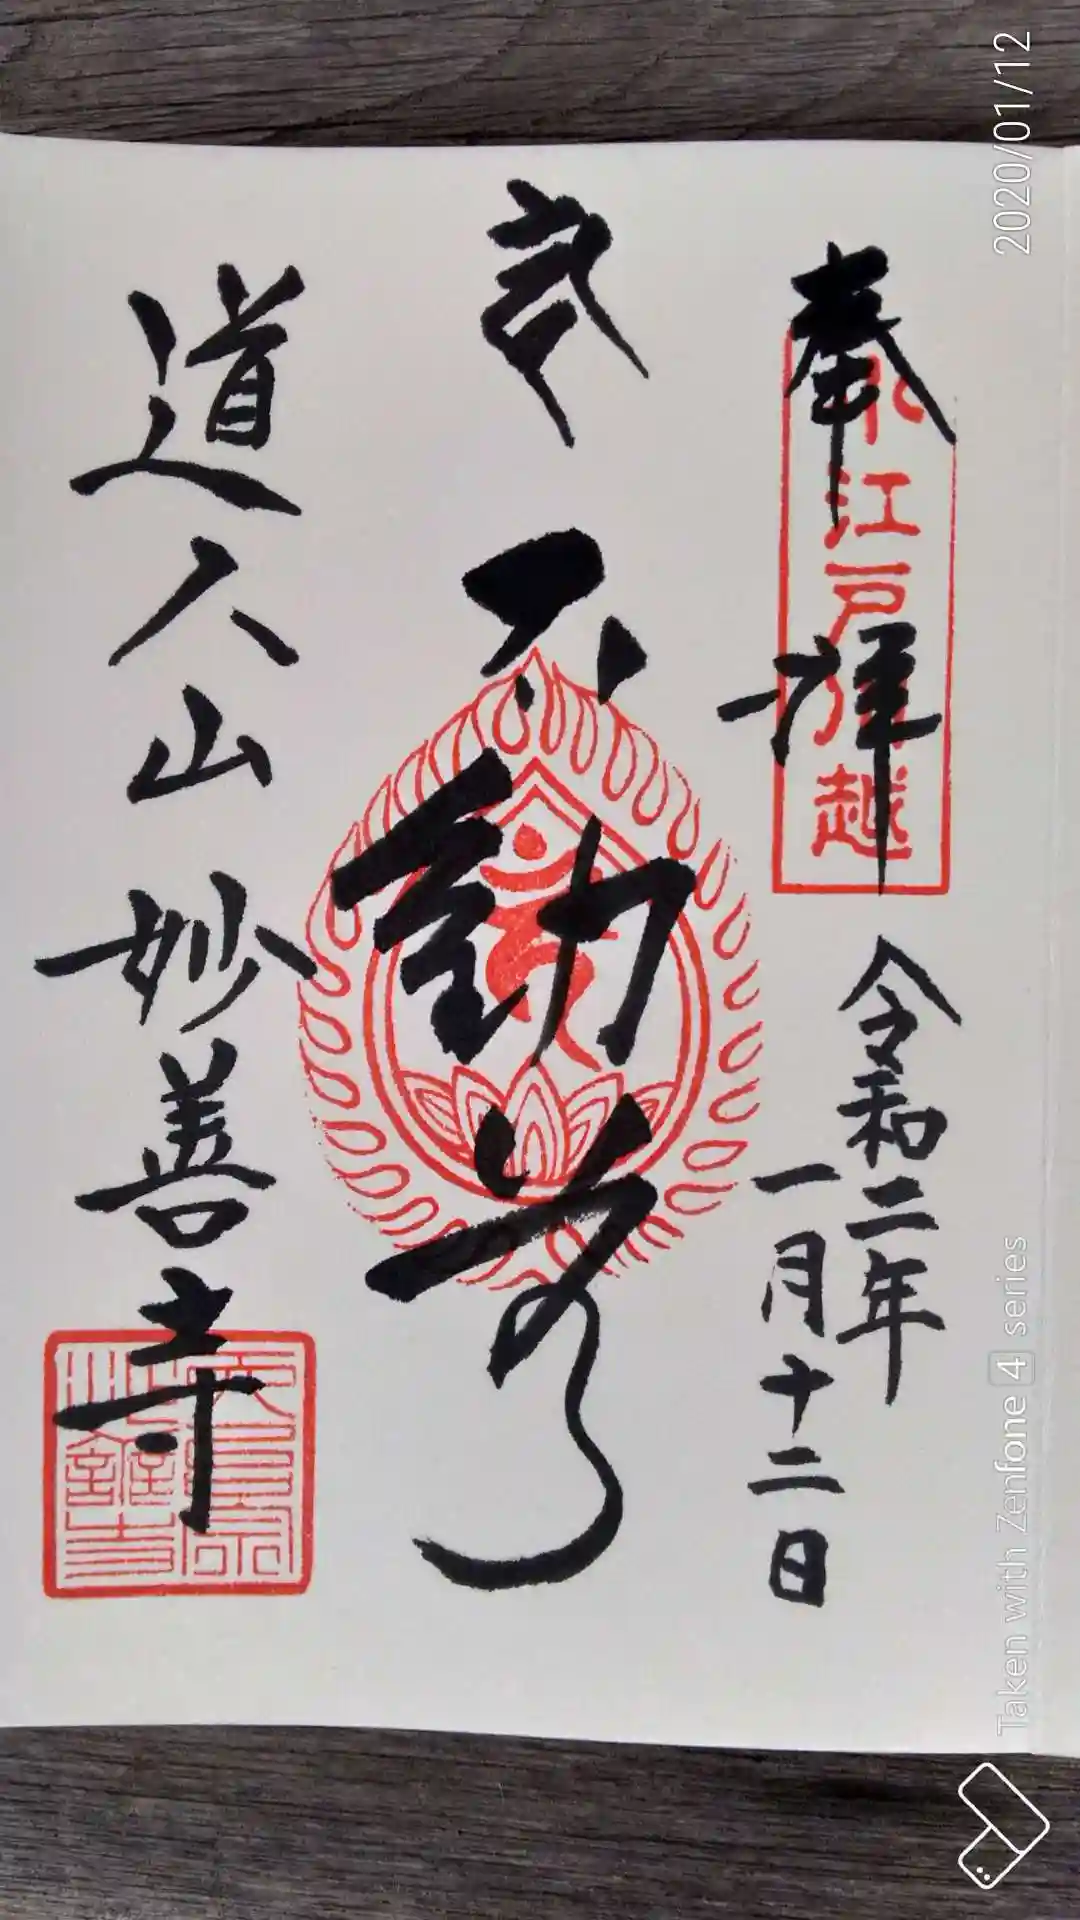 奉拝
小江戸川越
令和二年
一月十二日
不動尊
道人山 妙善寺
2020/01/12
Taken with Zenfone 4 series